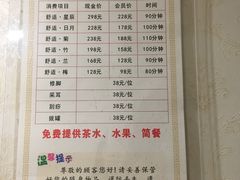 消费项目 现金价 会员价 时间
舒适·星辰 298元 228元 90分钟
舒适·日月 228元 178元 100分钟
舒适·菊 238元 188元 110分钟
舒适·竹 198元 158元 100分钟
舒适·兰 158元 128元 90分钟
舒适·梅 128元 98元 80分钟
修脚 38元/位
采耳 38元/位
刮痧 38元/位
拔罐 38元/位
免费提供茶水、水果、简餐
温馨提示
尊敬的顾客您好!请妥善保管